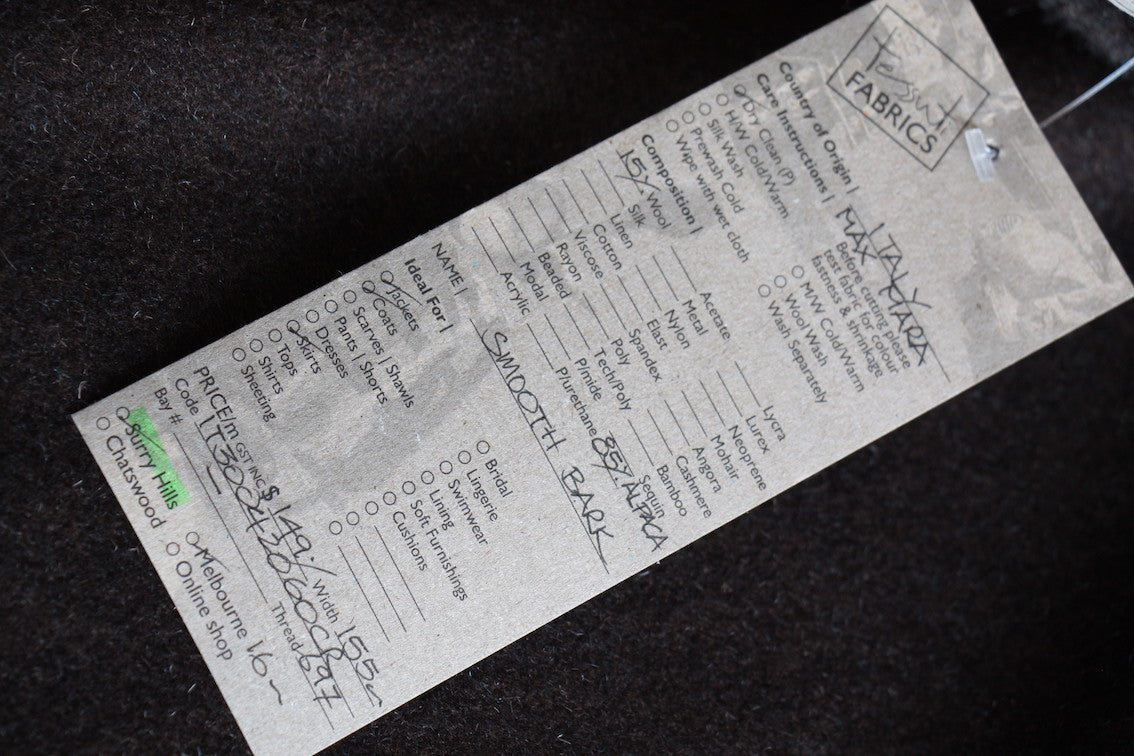 tessuti
FABRICS
Country of Origin | ITALY
Care Instructions | MAX MARA
Dry Clean (P)
H/W Cold/Warm
Silk Wash
Prewash Cold
Wipe with wet cloth
Before cutting please
test fabric for colour
fastness & shrinkage
M/W Cold/Warm
Wool Wash
Wash Separately
Composition |
15% Wool
Silk
Linen
Cotton
Viscose
Rayon
Beaded
Modal
Acrylic
Acetate
Metal
Nylon
Elast
Spandex
Poly
Tech/Poly
P/mide
P/urethane
Lycra
Lurex
Neoprene
Mohair
Angora
Cashmere
Bamboo
Sequin
85% ALPACA
NAME | SMOOTH BARK
Ideal For |
Jackets
Coats
Scarves | Shawls
Pants | Shorts
Dresses
Skirts
Tops
Shirts
Sheeting
Bridal
Lingerie
Swimwear
Lining
Soft Furnishings
Cushions
PRICE/m GST INC $149./ Width 155
Code
Bay # Thread 697
Surry Hills
Chatswood
Melbourne 16m
Online shop